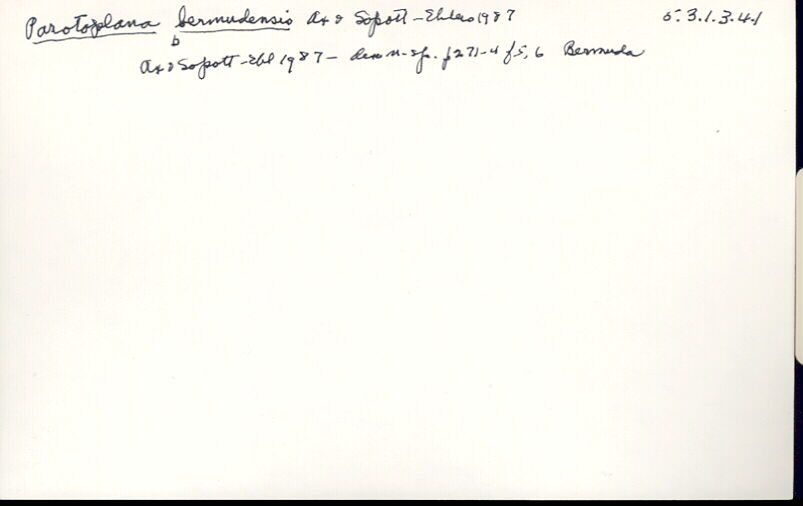 Parotoplana bermudensis Ax & Sopott-Ehlers 1987 5.3.1.3.4.1
b
Ax & Sopott-Ehl 1987 - des n. sp. p271-4 f5,6 Bermuda